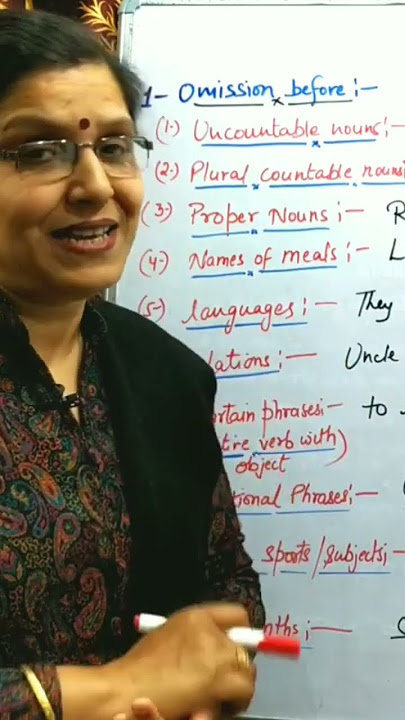 1- Omission before :-
(1.) Uncountable nouns :-
(2.) Plural countable nouns
(3.) Proper Nouns :- R
(4.) Names of meals :- L
(5.) languages :- They
lations :- Uncle
rtain phrases :- to
tire verb with)
object
tional Phrases :-
sports/subjects :-
nths :-